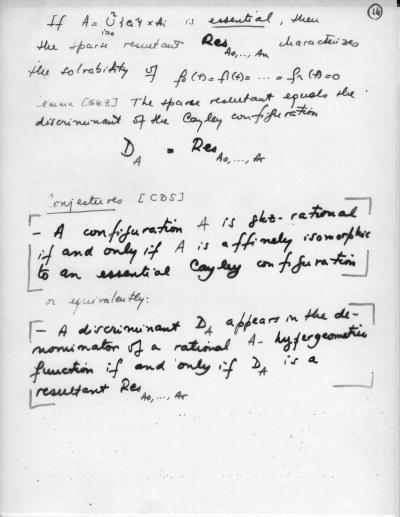 16
If A = ∪_{i=0}^{r} {e_i} × A_i is essential, then
the sparse resultant Res_{A_0,...,A_r} characterizes
the solvability of f_0(t) = f_1(t) = ... = f_r(t) = 0
Lemma [GKZ] The sparse resultant equals the
discriminant of the Cayley configuration
D_A = Res_{A_0,...,A_r}
Conjectures [CDS]
- A configuration A is gkz-rational
if and only if A is affinely isomorphic
to an essential Cayley configuration
or equivalently:
- A discriminant D_A appears in the de-
nominator of a rational A-hypergeometric
function if and only if D_A is a
resultant Res_{A_0,...,A_r}